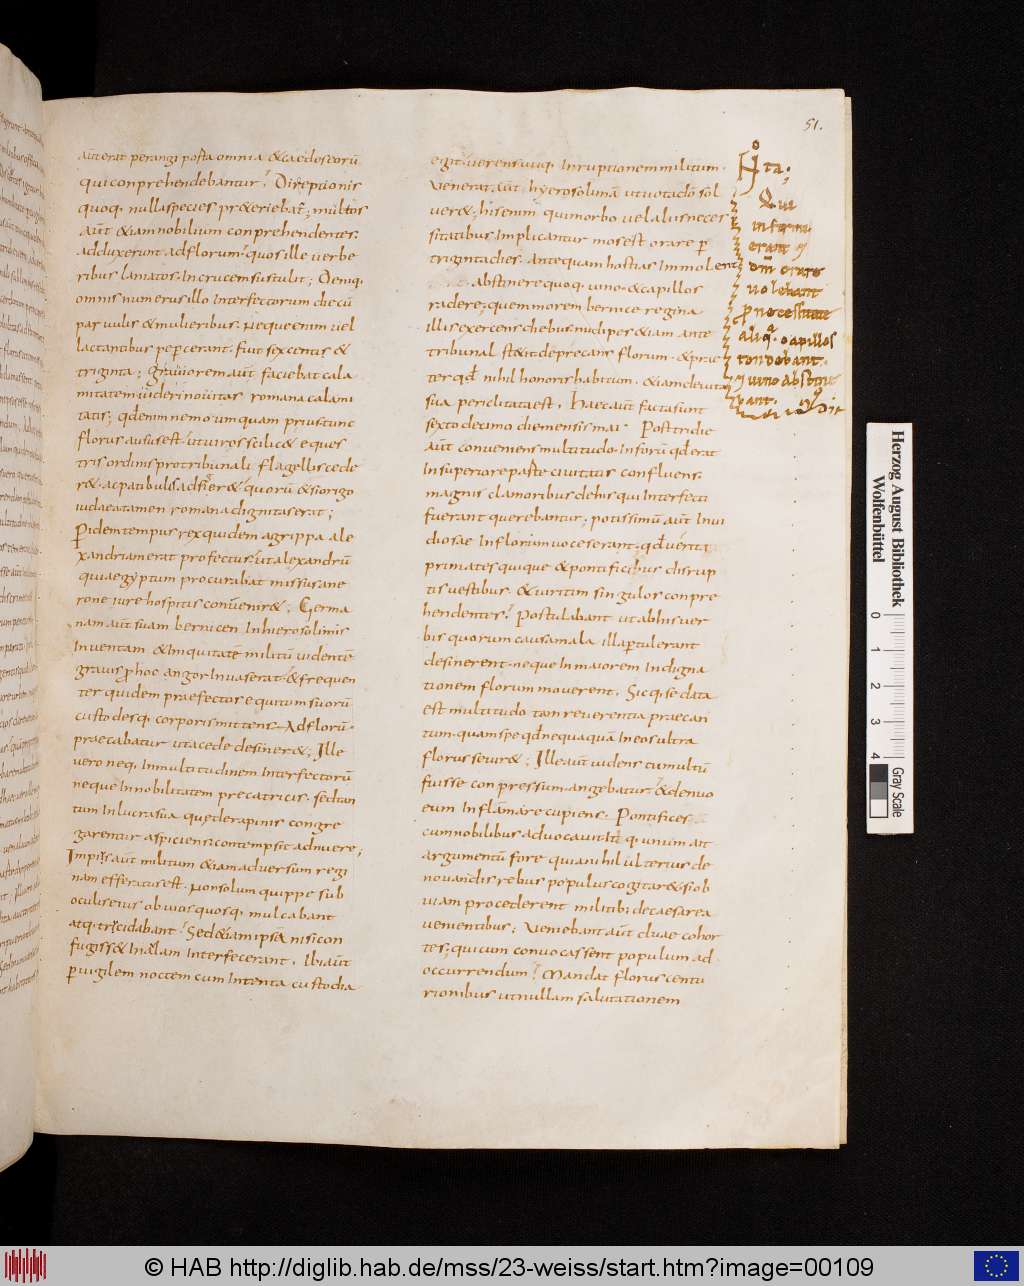 51.
aut erat perangi posta omnia & caedes eorū
qui conprehendebantur; Direptionis
quoq. nulla species pr&eriebat̄; multos
aūt & iam nobilium conprehendentes.
adduxerunt ad florum quos ille verbe
ribus laniatos In crucem sustulit; Deniq.
omnis numerus illo Interfectorum die cū
parvulis & mulieribus. Neque enim vel
lactantibus pepercerant. fuit sexcentis &
triginta; graviorem aūt faciebat cala
mitatem videri novitas romana calami
tatis; qđ enim nemo umquam prius tunc
florus ausus est ut viros scilic& eques
tris ordinis pro tribunali flagellis cede
r& ac patibulis adfier& quorū & si origo
iudaea tamen romana dignitas erat;
P idem tempus rex quidem agrippa ale
xandriam erat profectus ut alexandrū
qui aegyptum procurabat missus a ne
rone iure hospitis convenir&; Germa
nam aūt suam bernicen In hierosolimis
Inventam & Iniquitatē militū videntē
gravis phoc angor Invaserat & frequen
ter quidem praefectos equitum suorū
custodesq. corporis mittens Ad florū
praecabatur ut a cede desiner&; Ille
vero neq. In multitudinem Interfectorū
neque In nobilitatem precatricis. sed tan
tum In lucra sua que de rapinis congre
garentur aspiciens contempsit adnuere;
Impetus aūt militum & iam adversum regi
nam efferatus est. Non solum quippe sub
oculis eius obvios quosq. mulcabant
atq. trucidabant; Sed & iam ipsā nisi con
fugiss& In aulam Interfecerant. Ibi aūt
pervigilem noctem cum Intenta custodia
egit verens usiq. Inruptionem militum.
Venerat aūt hyerosolimā ut vota dō sol
ver&; his enim qui morbo vel aliis neces
sitatibus Implicantur mos est orare p
triginta dies. Antequam hostias Immolent
abstinere quoq. vino & capillos
radere; quem morem bernice regina
illis exercens diebus nudi pes & iam ante
tribunal stetit deprecans florum. & prae
ter qđ nihil honoris habitum. & iam de vita
sua periclitata est. Haec aūt facta sunt
sexto decimo die mensis mai. Postridie
aūt conveniens multitudo. In forū qđ erat
In superiore parte civitatis confluens.
magnis clamoribus de his qui Interfecti
fuerant querebantur; potissimū aūt Invi
diosae In florum voces erant. qđ veriti
primates quique & pontificibus disrup
tis vestibus. & viritim singulos conpre
hendentes; Postulabant ut ab his ver
bis quorum causa mala illa pertulerant
desinerent. neque In maiorem Indigna
tionem florum moverent. Sicq; sedata
est multitudo tam reverentia praecan
tum. quam spe qđ nequaquā In eos ultra
florus sevir&; Ille aūt videns tumultū
fuisse conpressum. angebatur & denuo
eum Inflāmare cupiens. Pontifices
cum nobilibus advocavit q. unum ait
argumentū fore quia nihil ulterius de
novandis rebus populus cogitar& si ob
viam procederent militibus de caesarea
venientibus; Veniebant aūt duae cohor
tes; qui cum convocassent populum ad
occurrendum; Mandat florus centu
rionibus ut nullam salutationem
Nota;
Qui
infirmi
erant
orare
volebant
p necessitate
aliqa capillos
tondebant.
vino abstine
bant.
Herzog August Bibliothek
Wolfenbüttel
0 1 2 3 4
Gray Scale
© HAB http://diglib.hab.de/mss/23-weiss/start.htm?image=00109